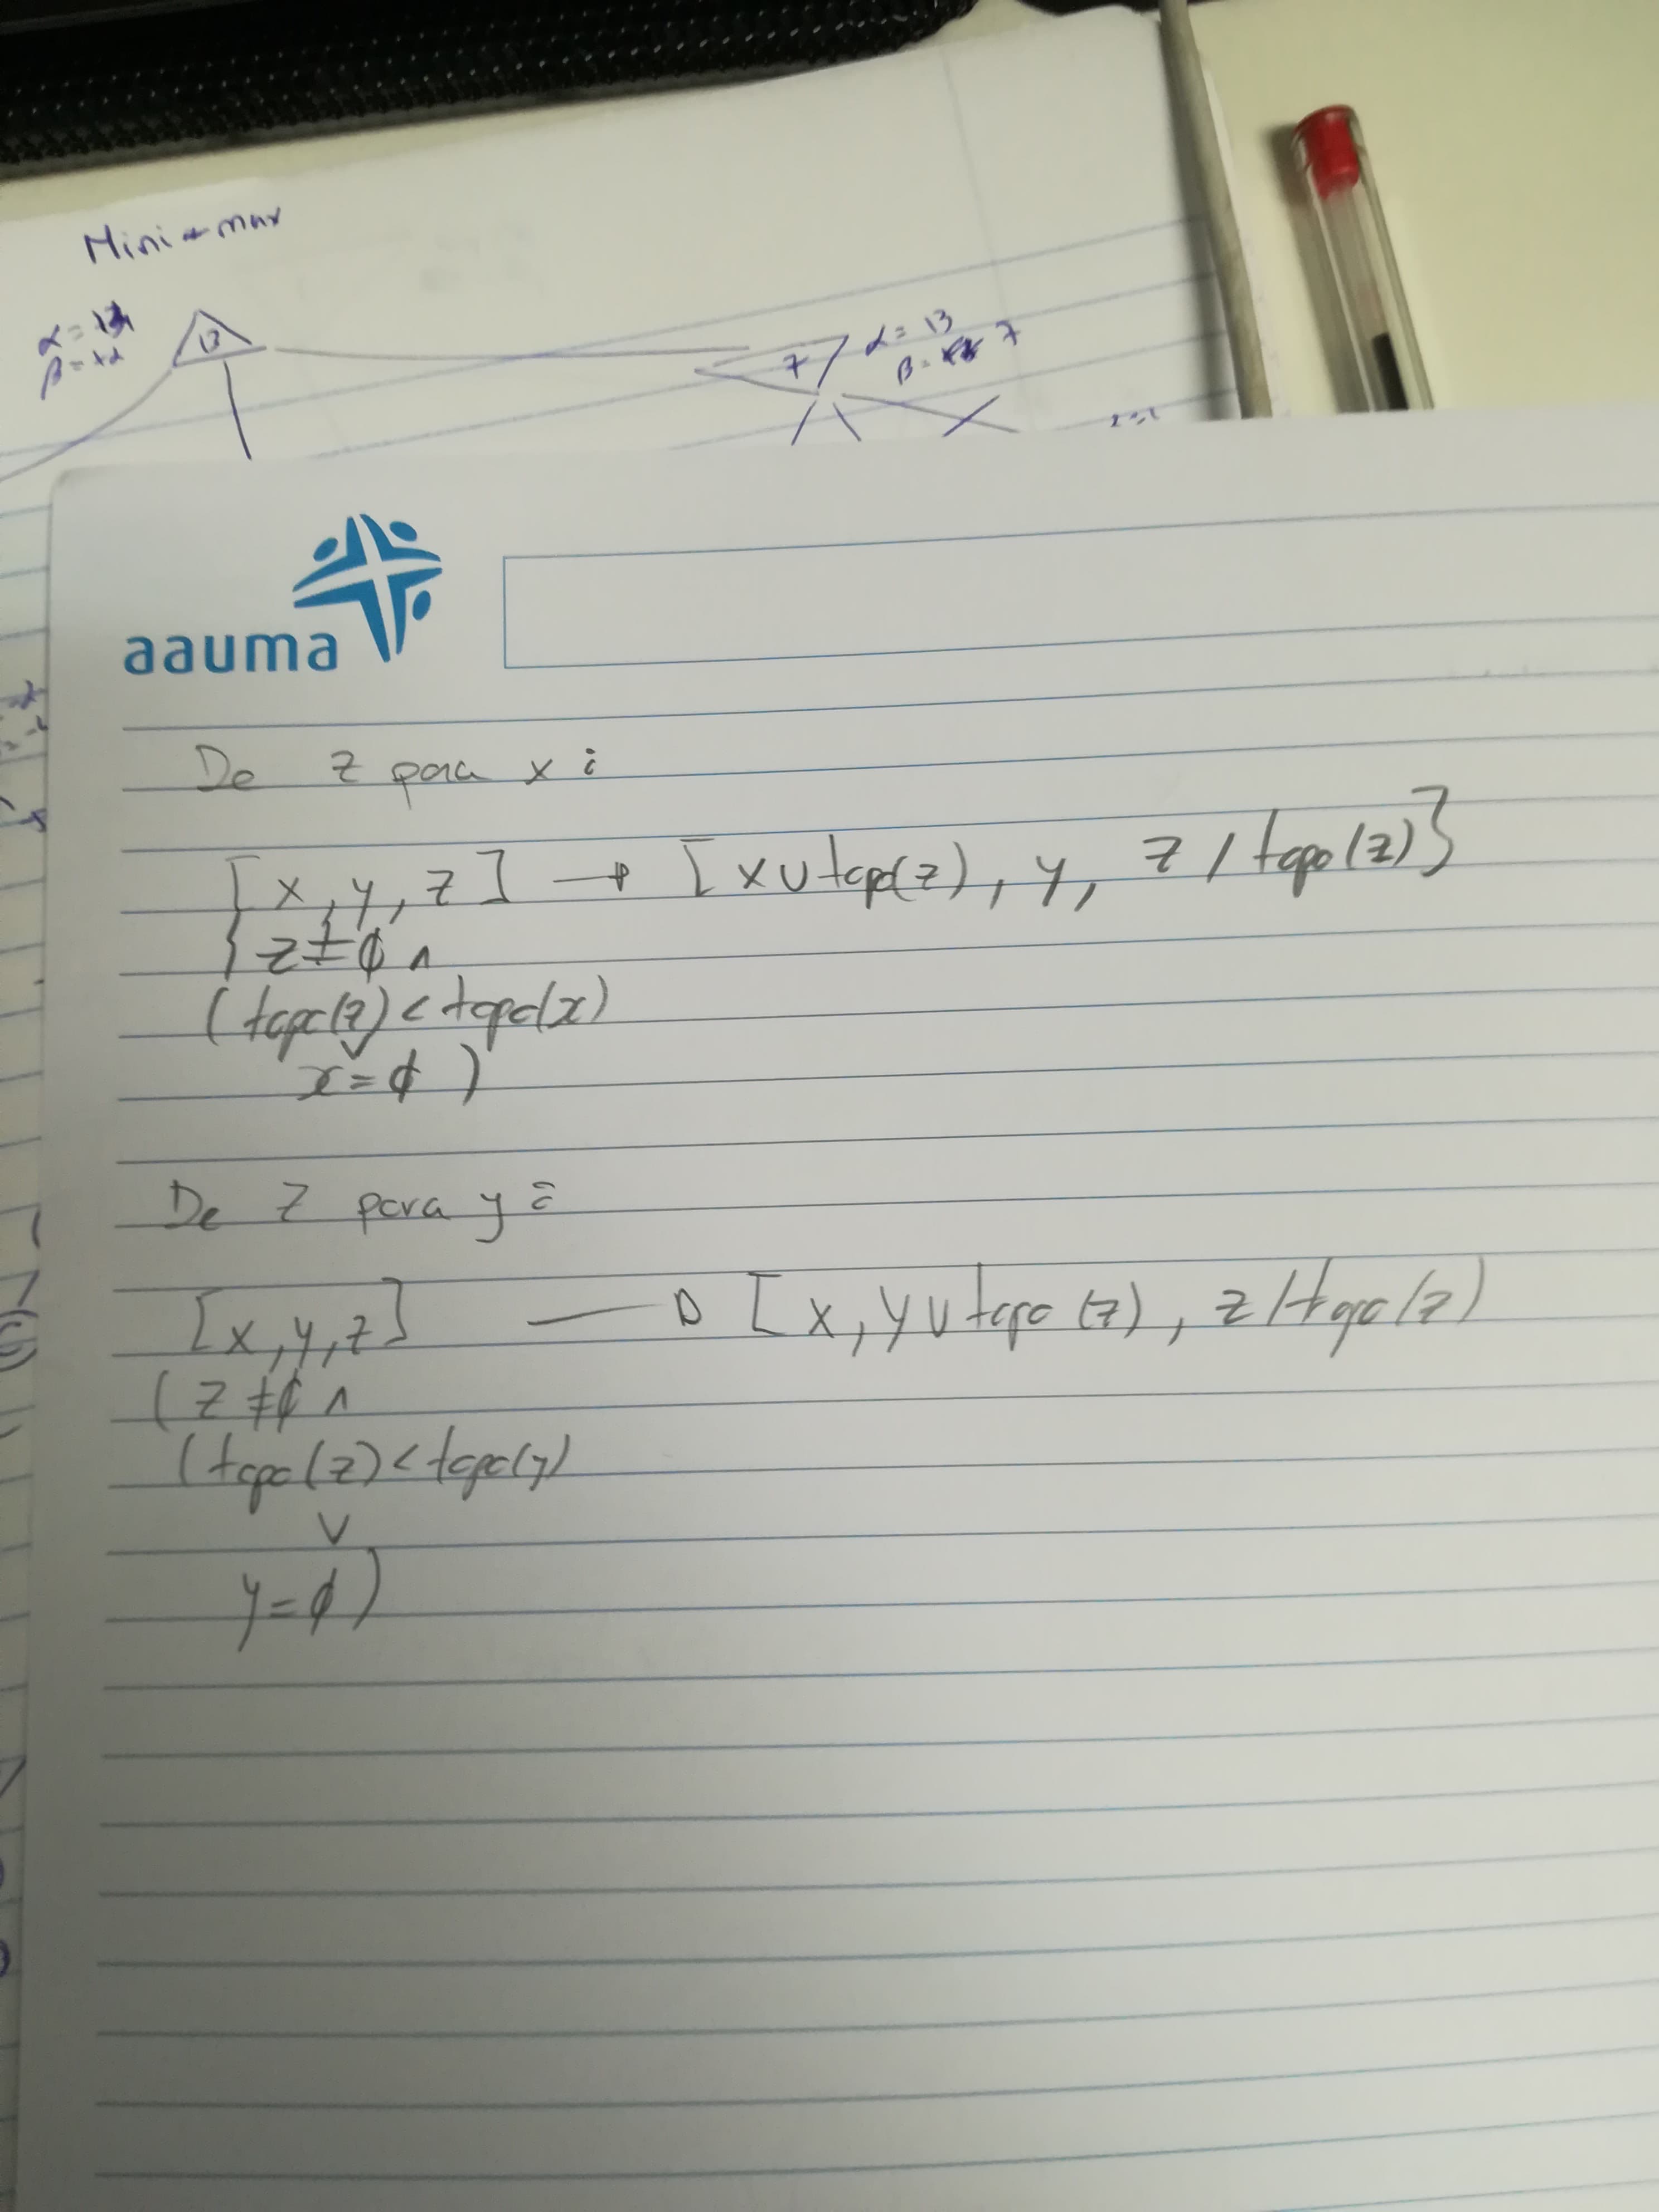 Mini-max
α = 13
β = +∞
13
7
α = 13
β = 7
aauma
De z para x :
[x, y, z] → [x ∪ topo(z), y, z / topo(z)}
{ z ≠ ∅ ∧
(topo(z) < topo(x)
∨
x = ∅ )
De z para y :
[x, y, z] → [x, y ∪ topo (z), z / topo(z)
( z ≠ ∅ ∧
(topo(z) < topo(y)
∨
y = ∅ )